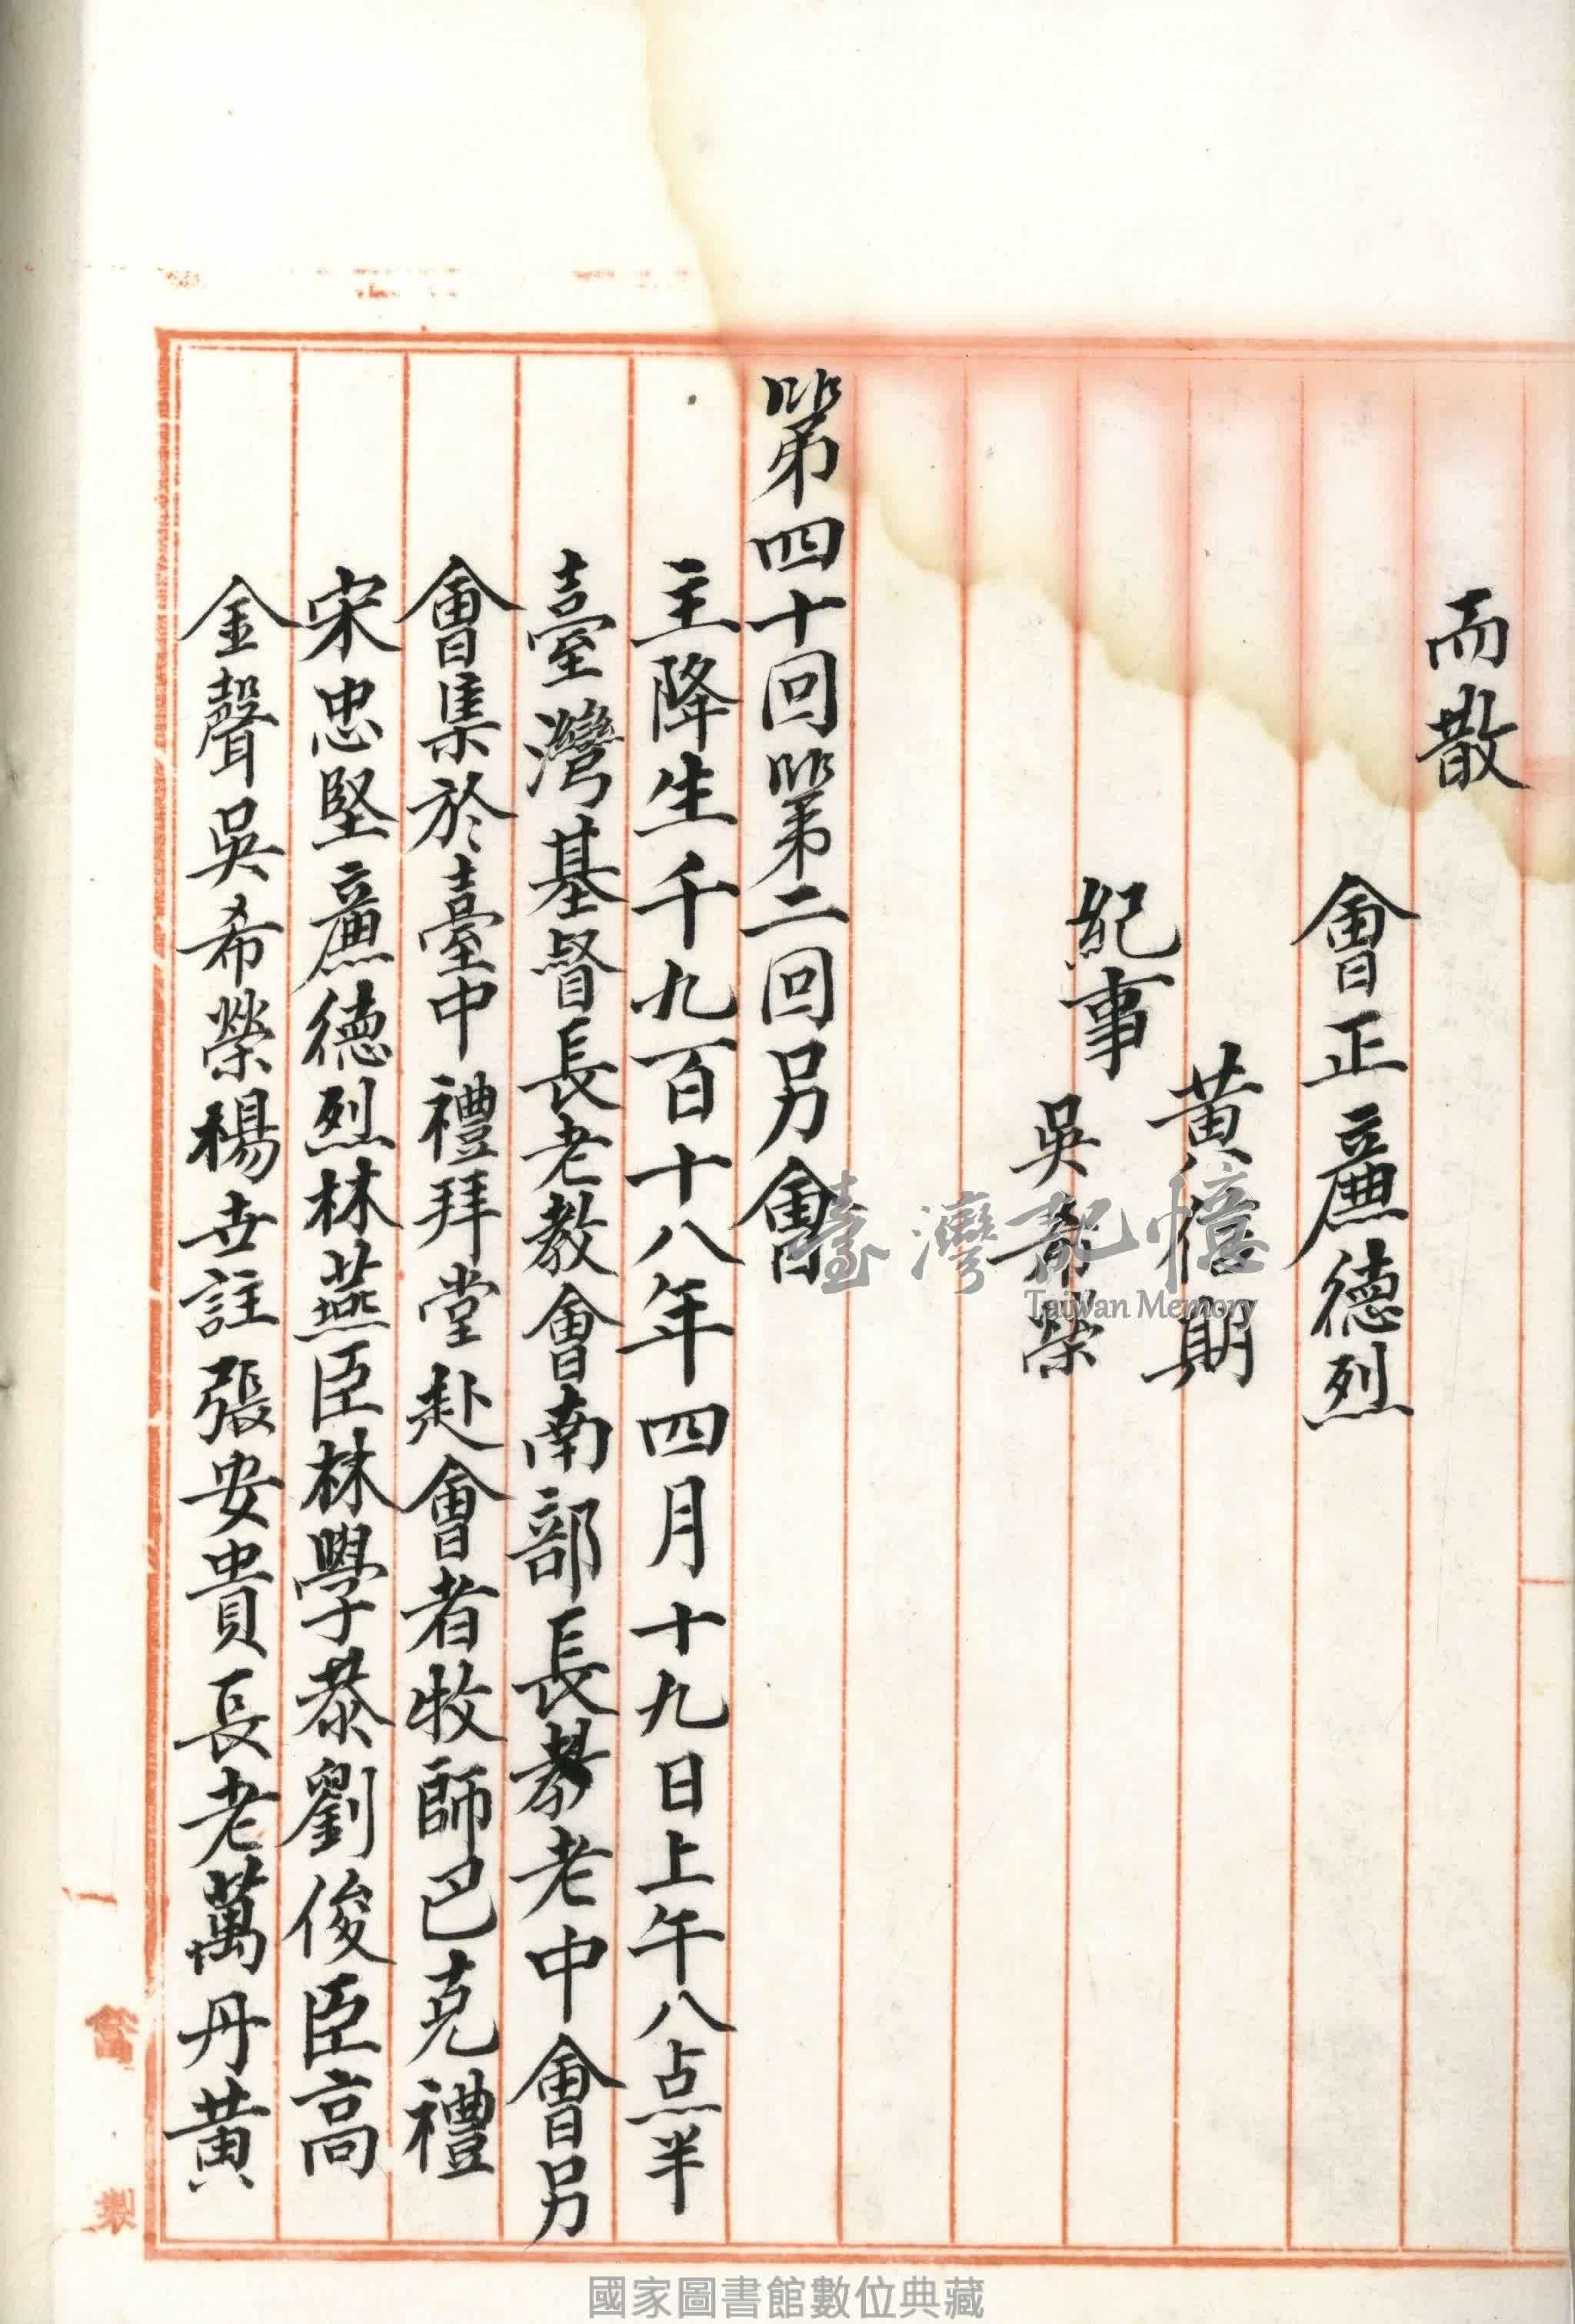 而散
會正廉德烈
黃信期
紀事
吳希榮
第四十回第二回另會
主降生千九百十八年四月十九日上午八点半
臺灣基督長老教會南部長老中會另
會集於臺中禮拜堂赴會者牧師巴克禮
宋忠堅廉德烈林燕臣林學恭劉俊臣高
金聲吳希榮楊世註張安貴長老萬丹黃
臺灣記憶
Taiwan Memory
國家圖書館數位典藏